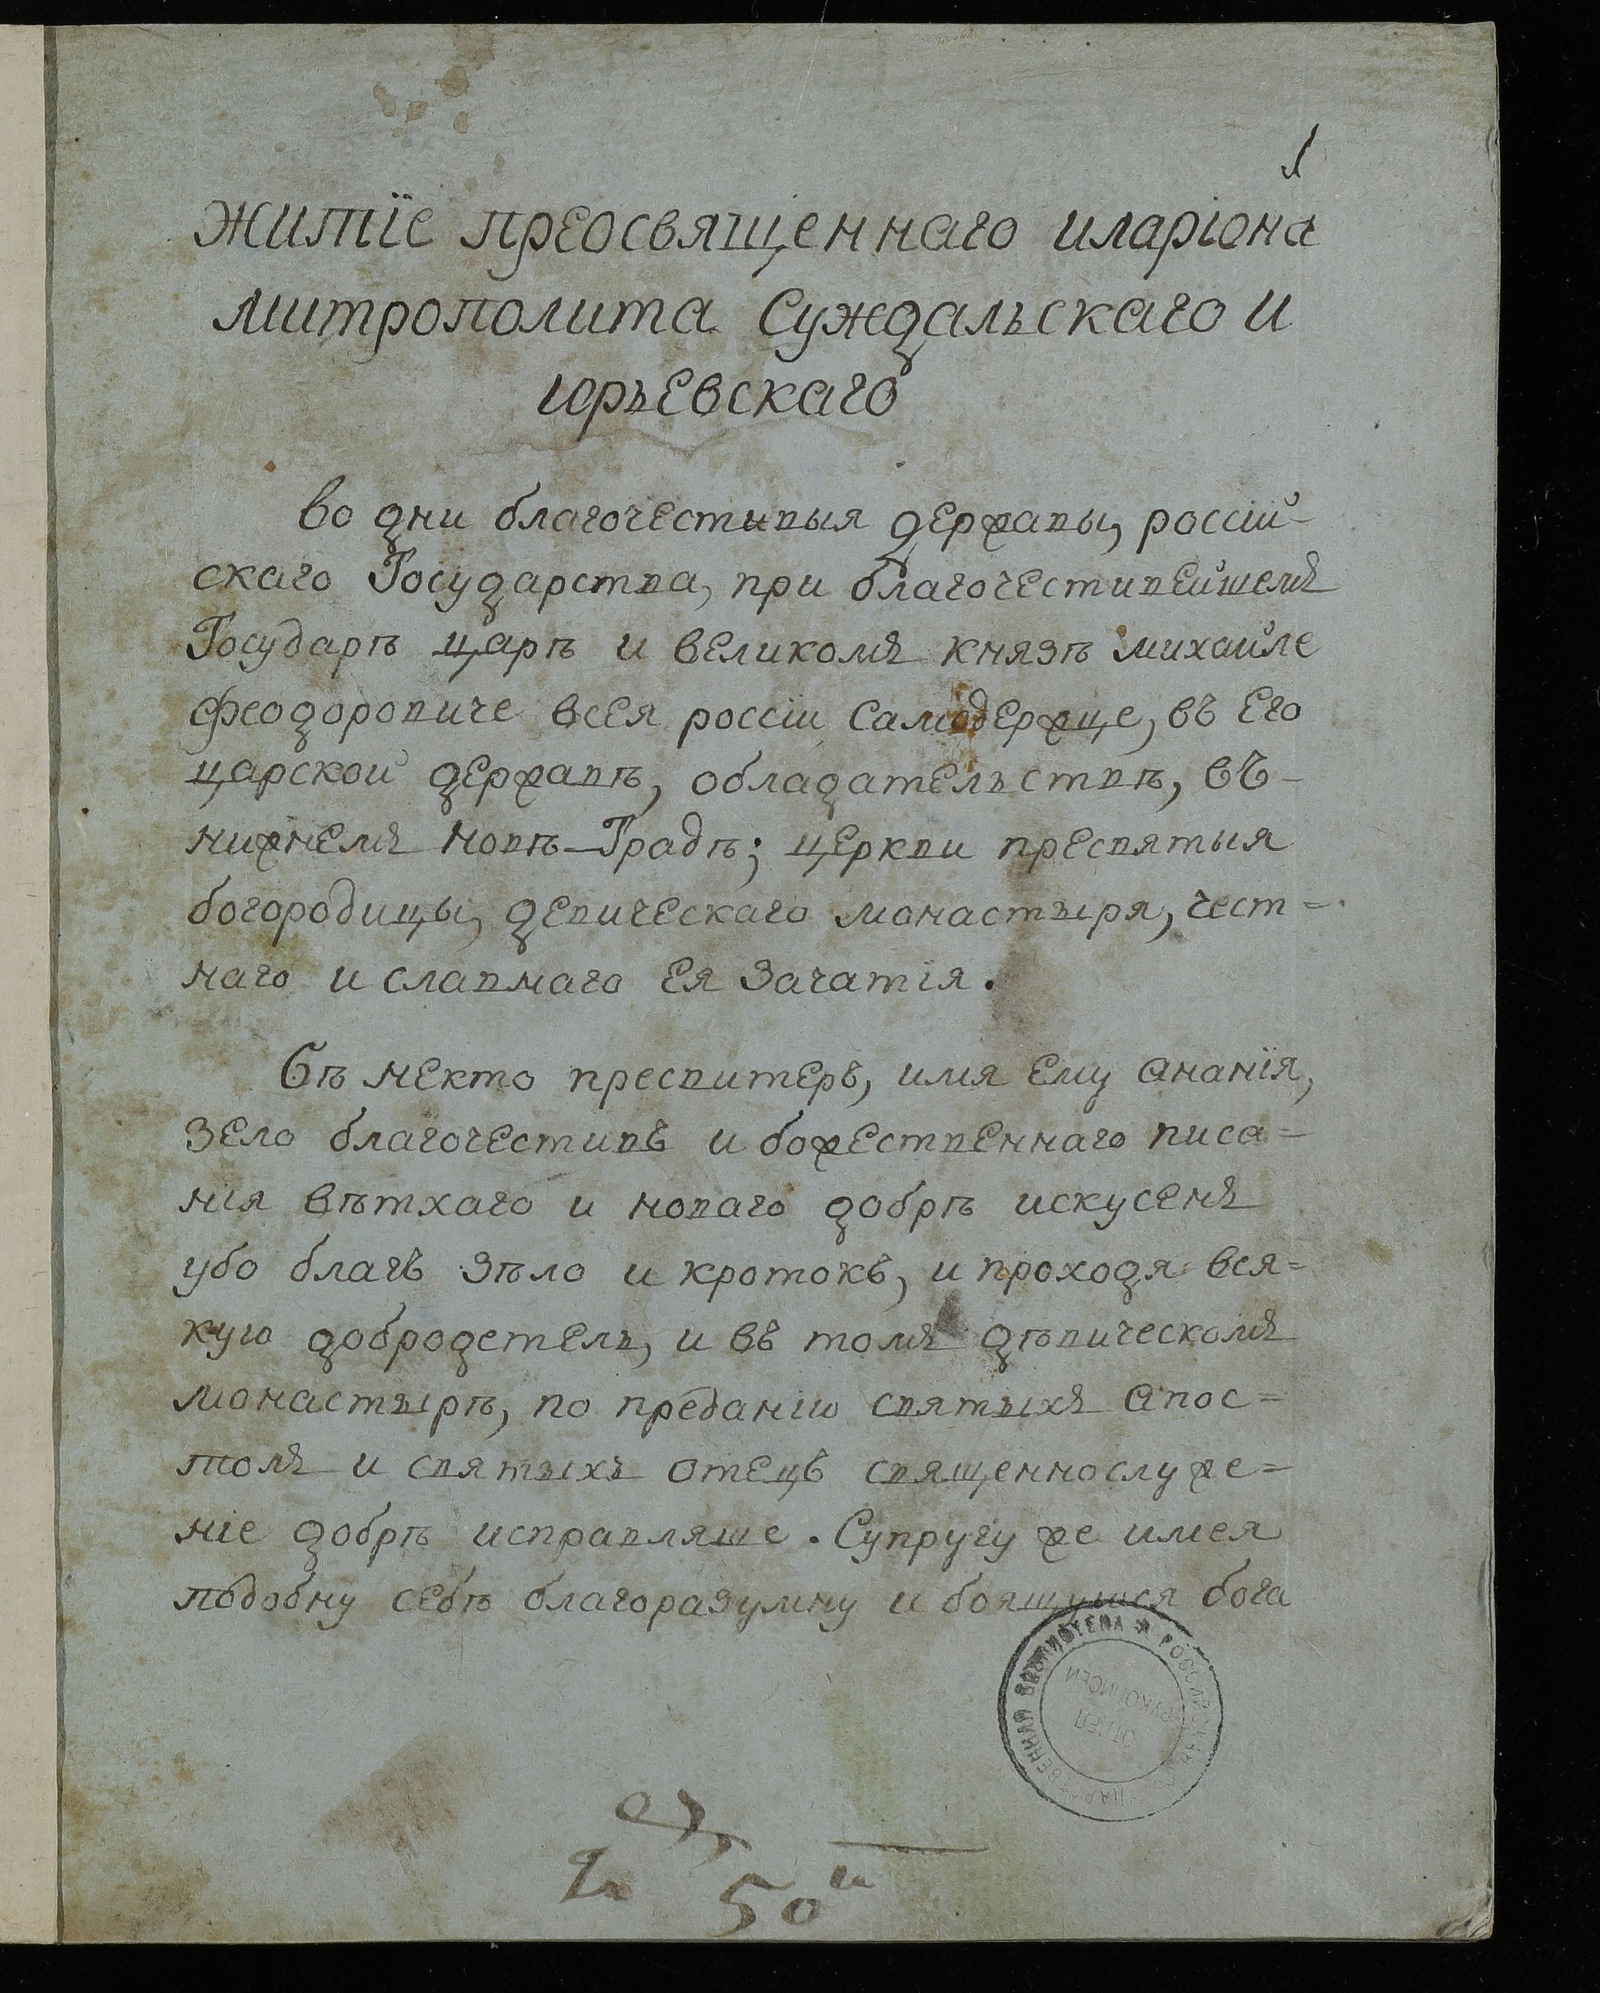 1
Житїе преосвященнаго иларіона
митрополита Суждальскаго и
юрьевскаго
во дни благочестивыя державы, россій-
скаго Государства, при благочестивейшемъ
Государѣ царѣ и великомъ князѣ михайле
феодоровиче всея россіи Самодержце, въ Его
царской державѣ, обладательствѣ, въ-
нижнемъ новѣ-Градѣ; церкви пресвятыя
богородицы, девическаго монастыря, чест=
наго и славнаго Ея Зачатія.
бѣ некто пресвитеръ, имя Ему Ананїя,
Зело благочестивъ и божественнаго писа=
нія вѣтхаго и новаго добрѣ искусенъ
убо благъ Зѣло и кротокъ, и проходя вся=
кую добродетель, и въ томъ дѣвическомъ
монастырѣ, по преданію святыхъ Апос=
толъ и святыхъ отецъ священнослуже=
ніе добрѣ исправляше. Супругу же имея
подобну себѣ благоразумну и боящуюся бога
ГОСУДАРСТВЕННАЯ БИБЛИОТЕКА * РОССИЙСКАЯ
ОТДЕЛ
РУКОПИСЕЙ
50